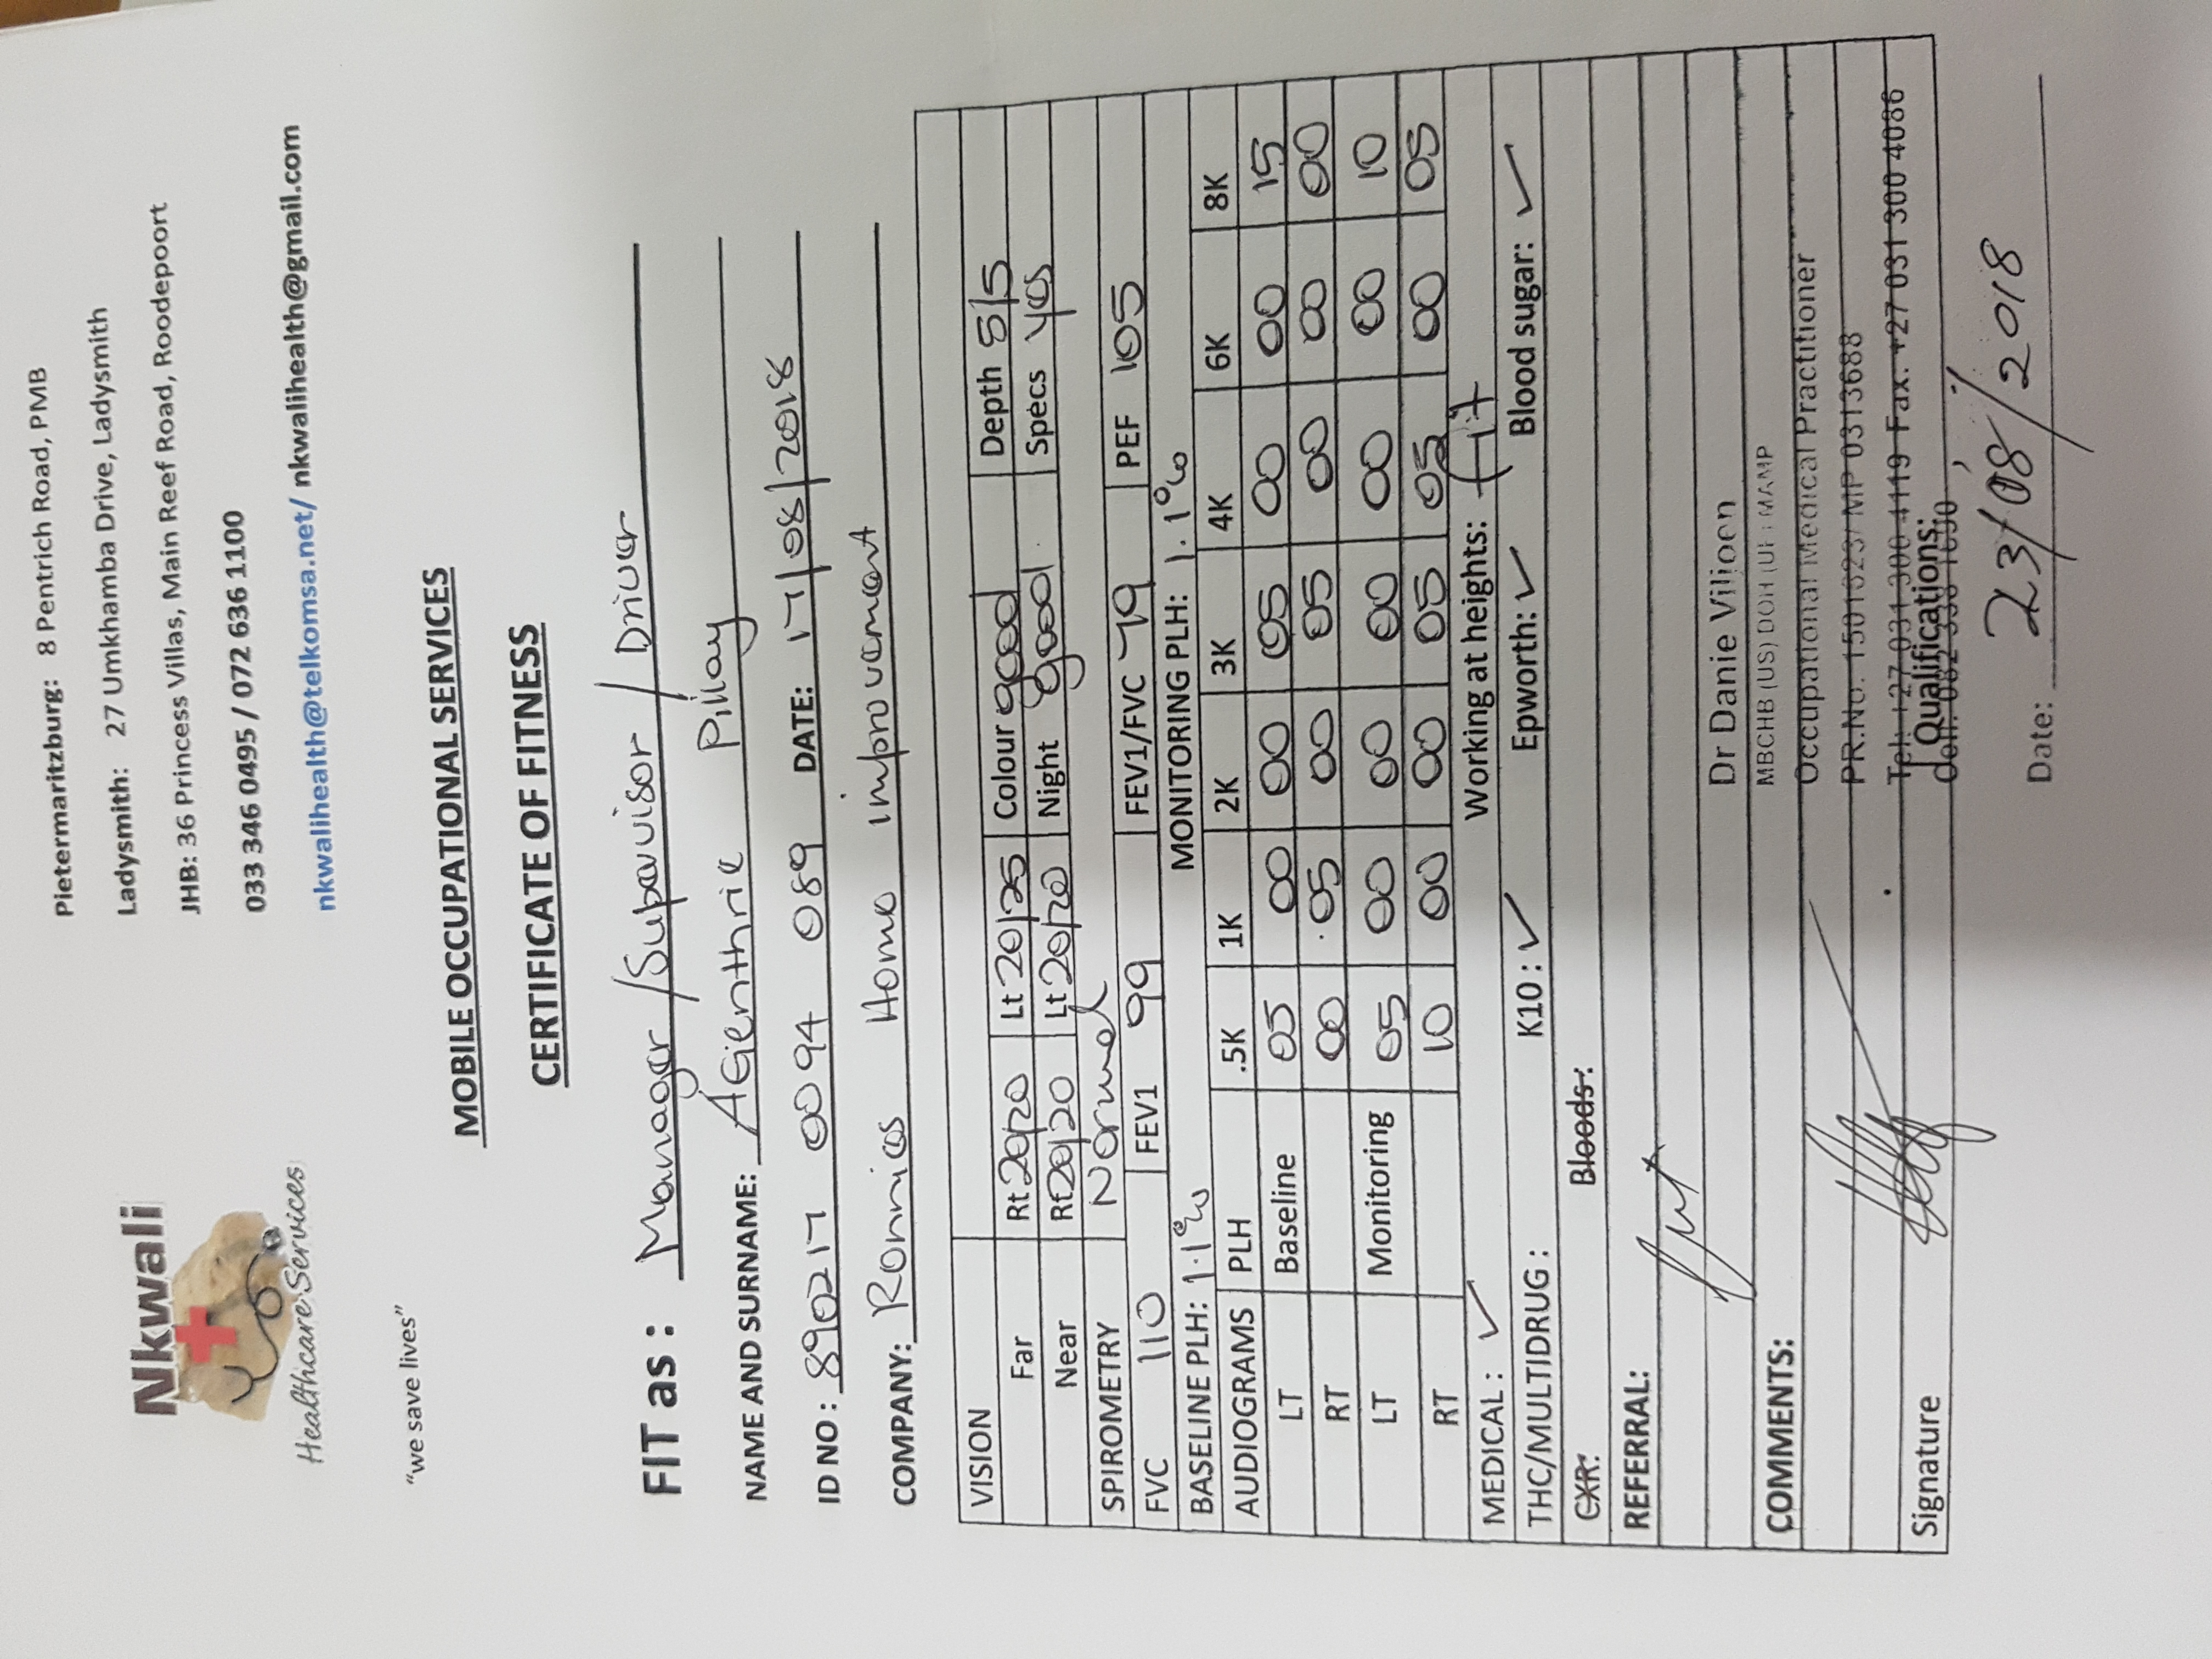 Nkwali
Healthcare Services
"we save lives"
Pietermaritzburg: 8 Pentrich Road, PMB
Ladysmith: 27 Umkhamba Drive, Ladysmith
JHB: 36 Princess Villas, Main Reef Road, Roodepoort
033 346 0495 / 072 636 1100
nkwalihealth@telkomsa.net/ nkwalihealth@gmail.com
MOBILE OCCUPATIONAL SERVICES
CERTIFICATE OF FITNESS
FIT as : Manager / Supervisor / Driver
NAME AND SURNAME: Agienthrie Pillay
ID NO : 890217 0094 089 DATE: 17/08/2018
COMPANY: Ronnies Home improvement
VISION
Far Rt 20/20 Lt 20/25 Colour good Depth 5/5
Near Rt 20/20 Lt 20/20 Night good. Specs yes
SPIROMETRY Normal
FVC 110 FEV1 99 FEV1/FVC 79 PEF 105
BASELINE PLH: 1.1% MONITORING PLH: 1.1%
AUDIOGRAMS PLH .5K 1K 2K 3K 4K 6K 8K
LT Baseline 05 00 00 05 00 00 15
RT 00 05 00 05 00 00 00
LT Monitoring 05 00 00 00 00 00 10
RT 10 00 00 05 05 00 05
MEDICAL : ✓ Working at heights: fit
THC/MULTIDRUG : K10 : ✓ Epworth: ✓ Blood sugar: ✓
CXR: Bloods:
REFERRAL:
Dr Danie Viljoen
MBCHB (US) DOH (UP) MAMP
COMMENTS: Occupational Medical Practitioner
PR.No. 1501623/ MP 0313688
Tel: +27 031 300 4119 Fax. +27 031 300 4086
Signature Qualifications:
Date: 23/08/2018